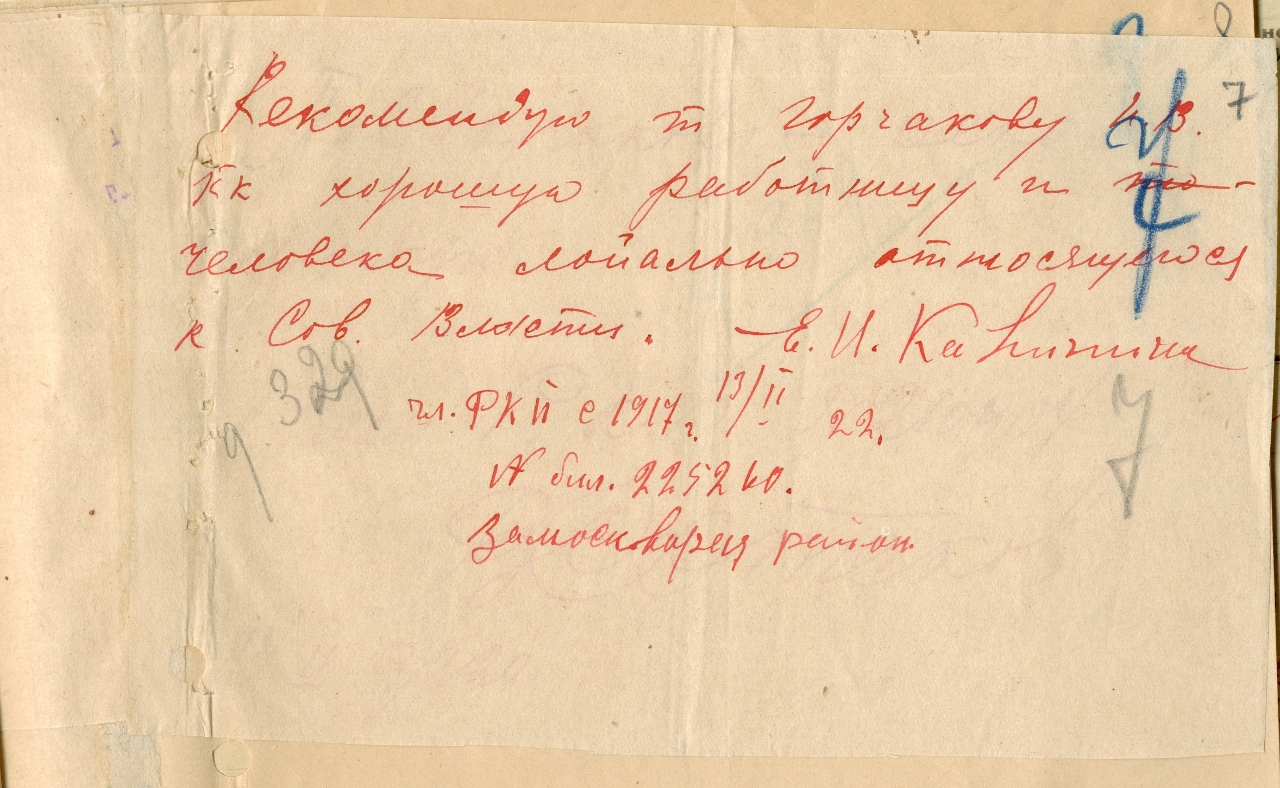 8
7
Рекомендую т Горчакову Н.В.
кк хорошую работницу и
человека лойально относящуюся
к Сов. Власти. Е. И. Калинина
329
чл. РКП с 1917 г. 13/II 22.
9
7
N бил. 225240.
Замоскворец район.